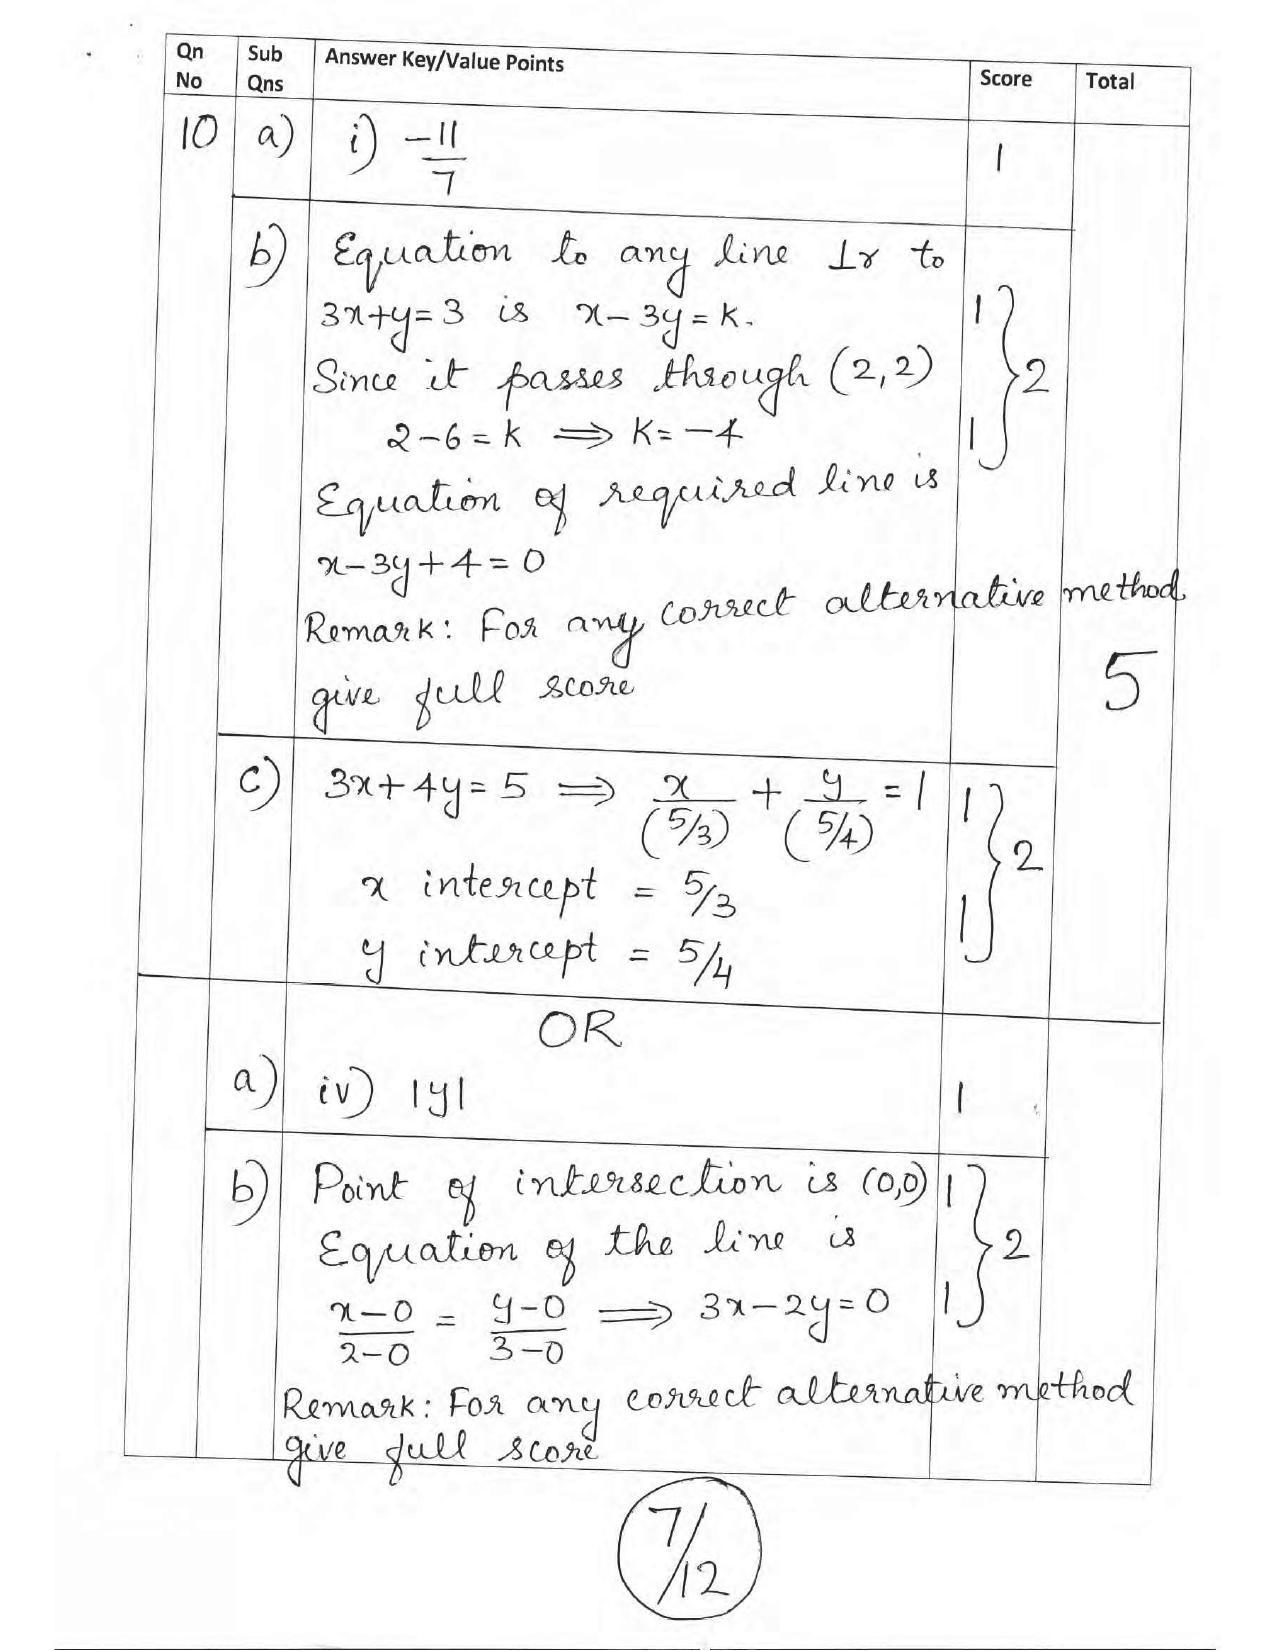 Qn No Sub Qns Answer Key/Value Points Score Total
10 a) i) -11/7 1
b) Equation to any line ⊥r to
3x+y=3 is x-3y=k. 1
Since it passes through (2,2) 2
2-6=k ⟹ k=-4 1
Equation of required line is
x-3y+4=0
Remark: For any correct alternative method
give full score 5
c) 3x+4y=5 ⟹ x/(5/3) + y/(5/4) = 1 1
x intercept = 5/3 2
y intercept = 5/4 1
OR
a) iv) |y| 1
b) Point of intersection is (0,0) 1
Equation of the line is 2
x-0/2-0 = y-0/3-0 ⟹ 3x-2y=0 1
Remark: For any correct alternative method
give full score
7/12